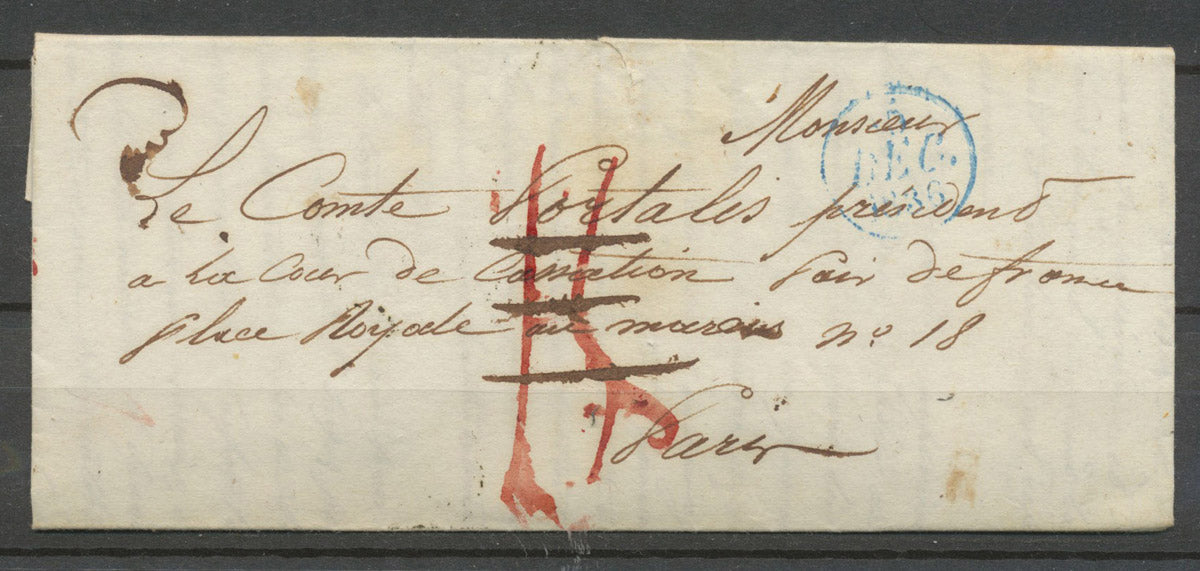 Monsieur
Le Comte Portalis président
a la Cour de Cassation Pair de france
place Royale au marais n° 18
Paris
5
DEC.
1836